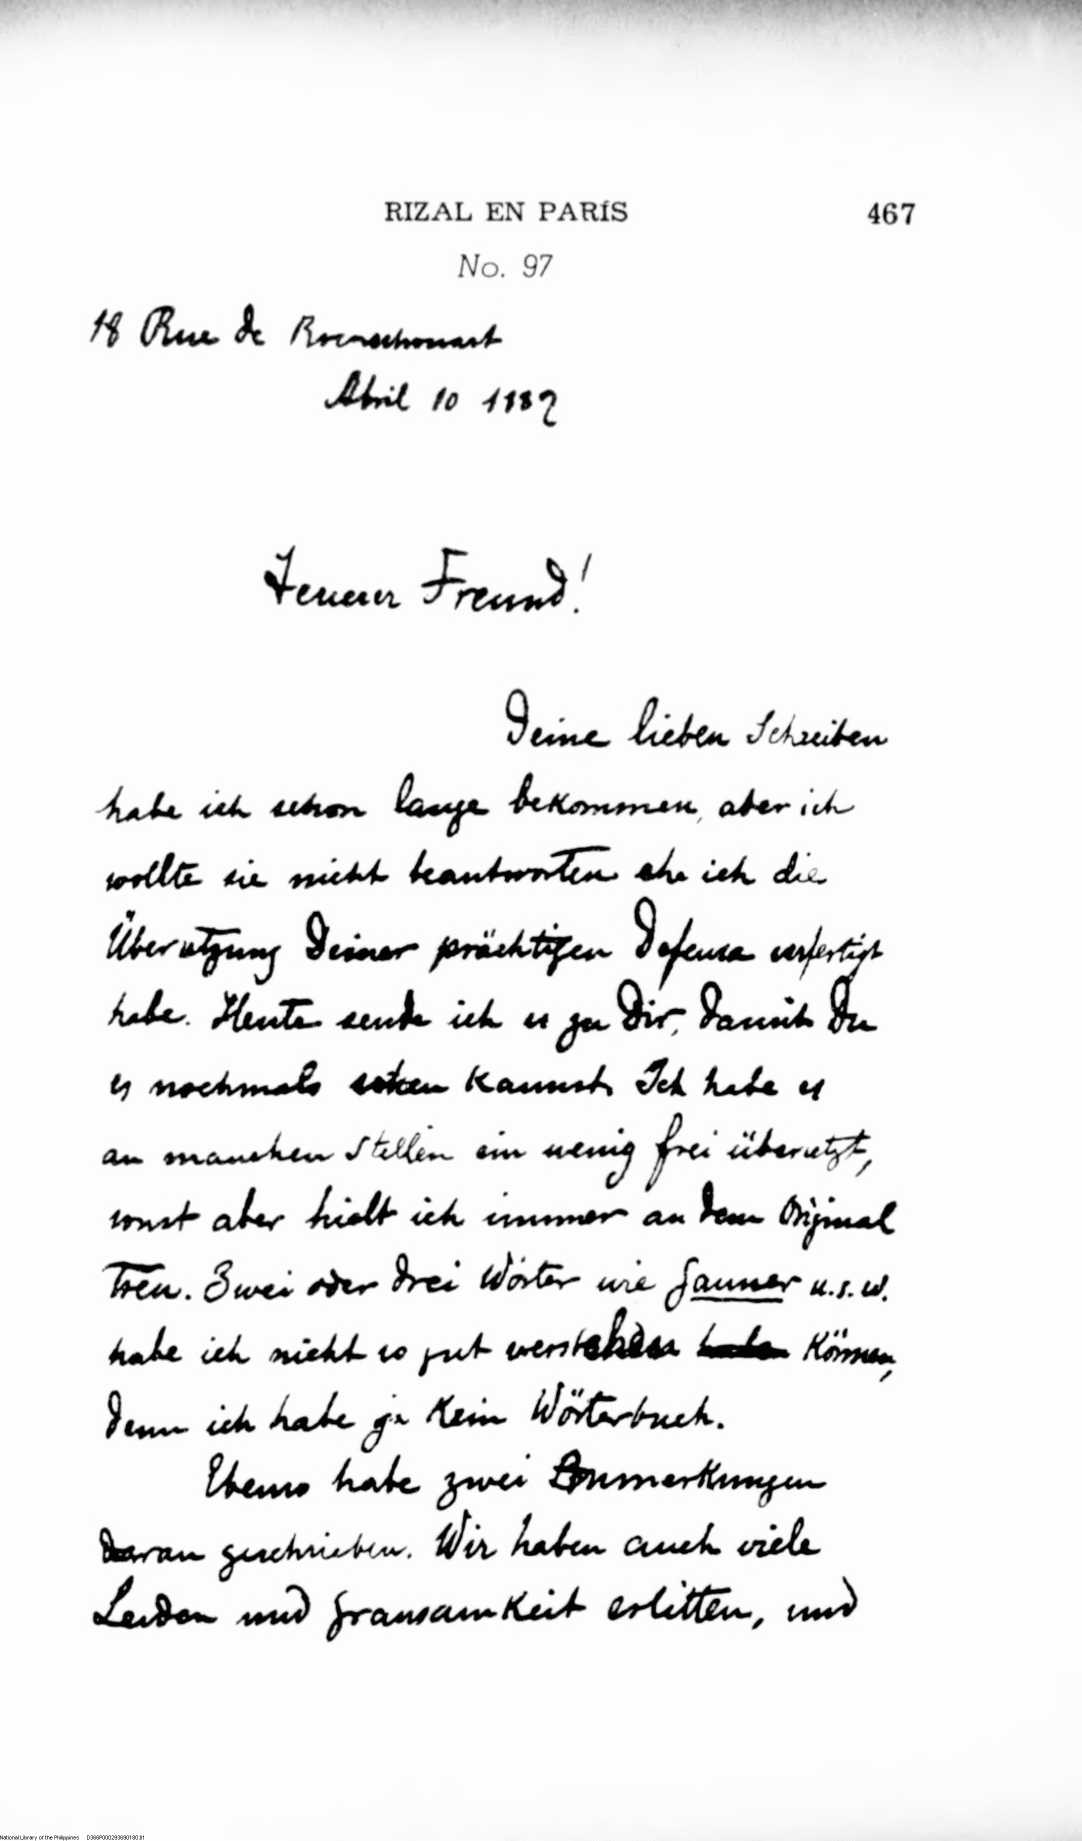 RIZAL EN PARÍS 467
No. 97
18 Rue de Rocheschouart
Abril 10 1889
Teuerer Freund!
Deine lieben Schreiben
habe ich schon lange bekommen, aber ich
wollte sie nicht beantworten ehe ich die
Übersetzung Deiner prächtigen Defensa verfertigt
habe. Heute sende ich es zu Dir, damit Du
es nochmals sehen kannst. Ich habe es
an manchen Stellen ein wenig frei übersetzt,
sonst aber hielt ich immer an dem Original
treu. Zwei oder drei Wörter wie Gauner u.s.w.
habe ich nicht so gut verstehen können,
denn ich habe ja kein Wörterbuch.
Ebenso habe zwei Anmerkungen
daran geschrieben. Wir haben auch viele
Leiden und Grausamkeit erlitten, und
National Library of the Philippines